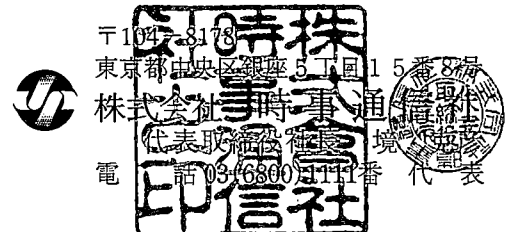 〒104-8178
東京都中央区銀座5丁目15番8号
株式会社 時事通信社
代表取締役社長 境
電 話 03(6800)1111番 代 表
株式會社
時事通信
社印